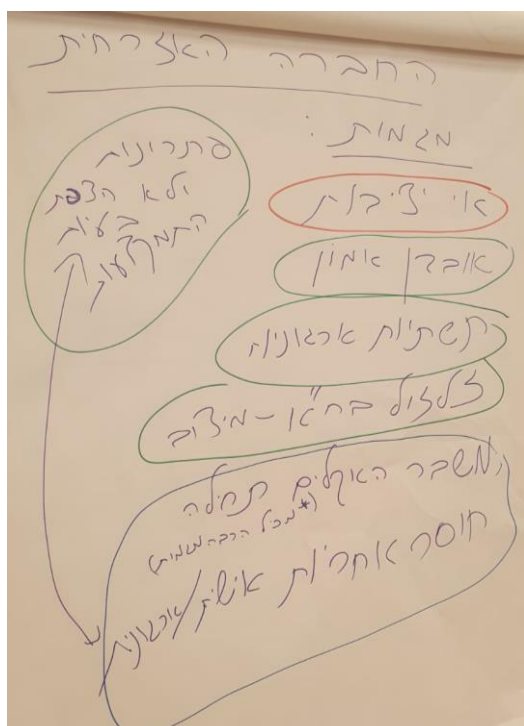 החברה האזרחית
מגמות:
אי יציבות
אובדן אימון
תשתיות ארגוניות
זלזול בח"א – מיצוב
משבר האקלים תחילה
(*מכיל הרבה מגמות)
חוסר אחריות אישית/ארגונית
פתרונות
ולא הצפת
בעיות